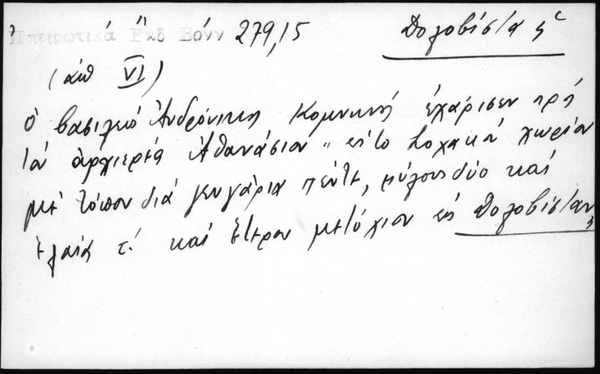 Ἠπειρωτικά Ἐκδ Βόνν 279,15 Δολοβίστα ἡ
(ἀπ VI)
ὁ βασιλεύς Ἀνδρόνικος Κομνηνός ἐχάρισεν πρός
τόν ἀρχιερέα Ἀθανάσιον " εἰς το χωρίον
μέ τόπον διά ζευγάρια πέντε, μύλους δύο καί
ἐλαίας τ. καί ἕτερον μετόχιον εἰς Δολοβίσταν